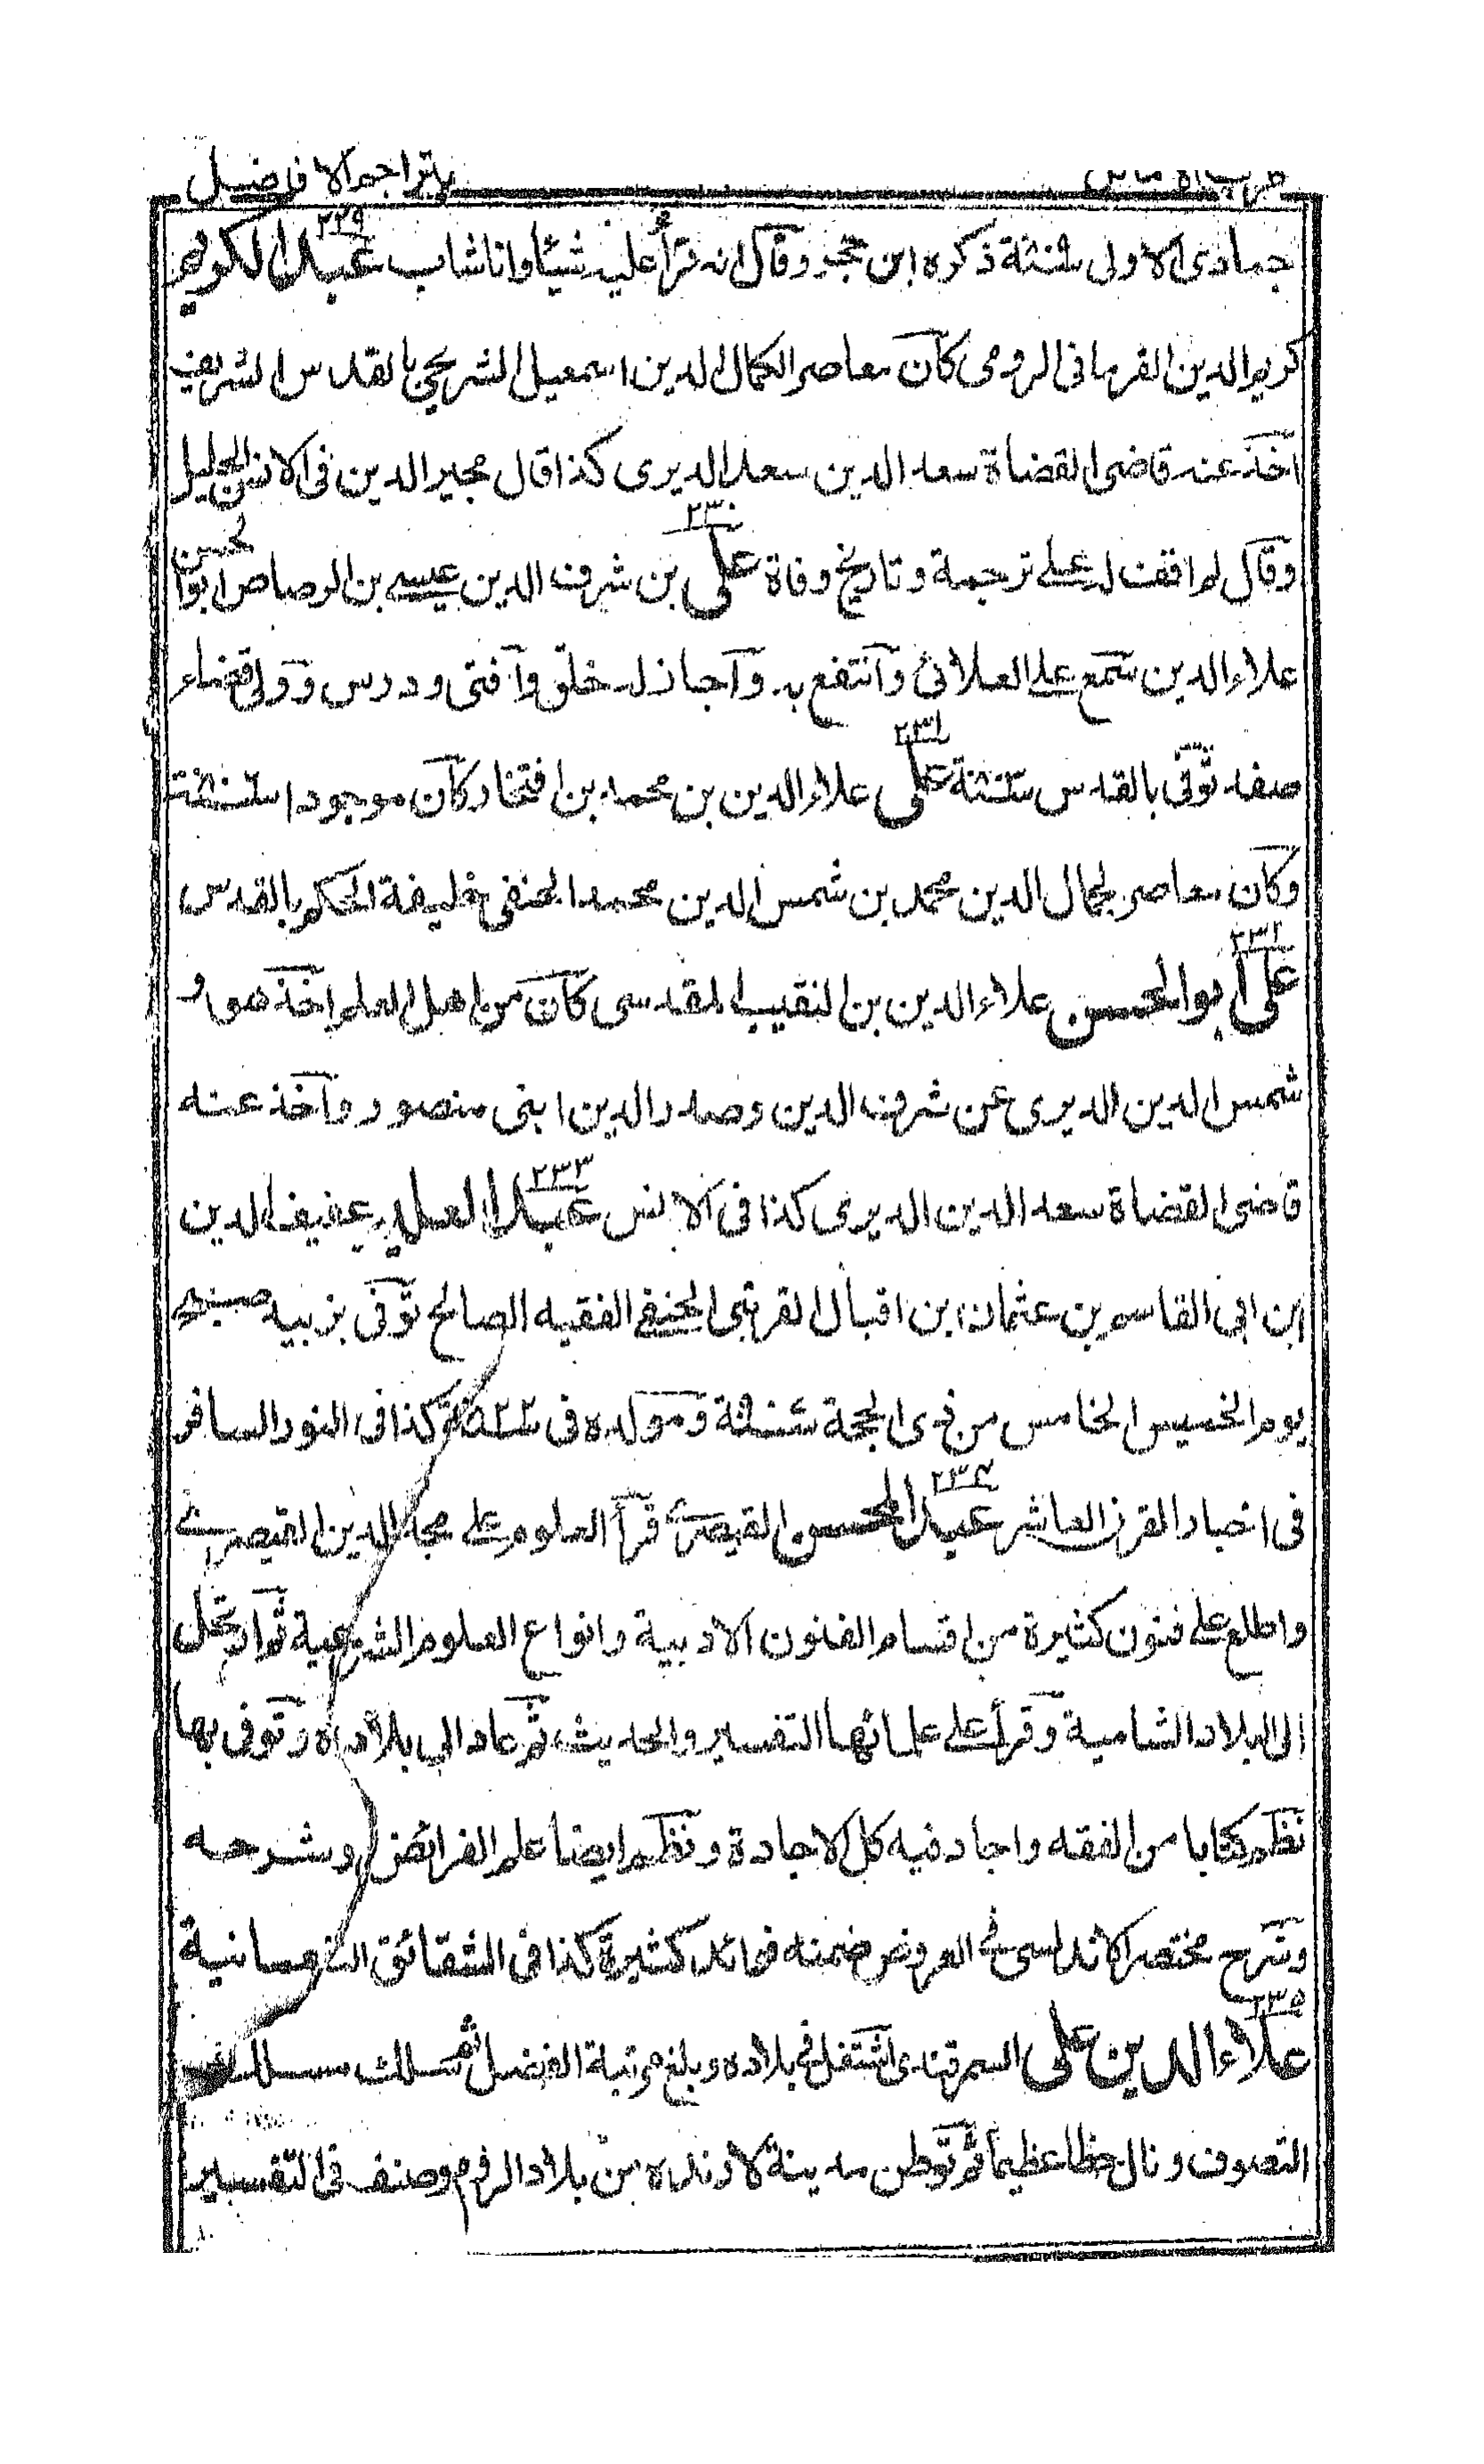 طرب الاماثل
بتراجم الافاضل
جمادى الاولى سنة ذكره ابن حجر وقال انه قرأ عليه شيئا وانا شاب ٢٢٩ عبد الكريم
كريم الدين القرمانى الرومى كان معاصر الكمال الدين اسمعيل الشريحى بالقدس الشريف
اخذ عنه قاضى القضاة سعد الدين سعد الديرى كذا قال مجير الدين فى الانس الجليل
وقال لم اقف له على ترجمة وتاريخ وفاة ٢٣٠ على بن شرف الدين عيسى بن الرصاص ابو الحسن
علاء الدين سمع على العلائى وانتفع به واجاز له خلق وافتى ودرس وولى قضاء
صفد توفى بالقدس سنة ٢٣١ على علاء الدين بن محمد بن افتخار كان موجودا سنة
وكان معاصر لجمال الدين محمد بن شمس الدين محمد الحنفى خليفة الحكم بالقدس
٢٣٢ على ابو الحسن علاء الدين بن النقيب المقدسى كان من اهل العلم اخذ هو و
شمس الدين الديرى عن شرف الدين وصدر الدين ابنى منصور واخذ عنه
قاضى القضاة سعد الدين الديرى كذا فى الانس ٢٣٣ عبد العليم عفيف الدين
ابن ابى القاسم بن عثمان بن اقبال القرشى الحنفى الفقيه الصالح توفى بزبيد صبح
يوم الخميس الخامس من ذى الحجة سنة ومولده فى كذا فى النور السافر
فى اخبار القرن العاشر ٢٣٤ عبد المحسن القيصرى قرأ العلوم على مجد الدين القيصرى
واطلع على فنون كثيرة من اقسام الفنون الادبية وانواع العلوم الشرعية ثم ارتحل
الى البلاد الشامية وقرأ على علمائها التفسير والحديث ثم عاد الى بلاده وتوفى بها
نظم كتابا من الفقه واجاد فيه كل الاجادة ونظم ايضا علم الفرائض وشرحه
وشرح مختصر الاندلسى فى العروض ضمنه فوائد كثيرة كذا فى الشقائق النعمانية
٢٣٥ علاء الدين على السمرقندى اشتغل فى بلاده وبلغ مرتبة الفضل ثم سلك مسلك
التصوف ونال حظا عظيما ثم توطن مدينة لارنده من بلاد الروم وصنف فى التفسير